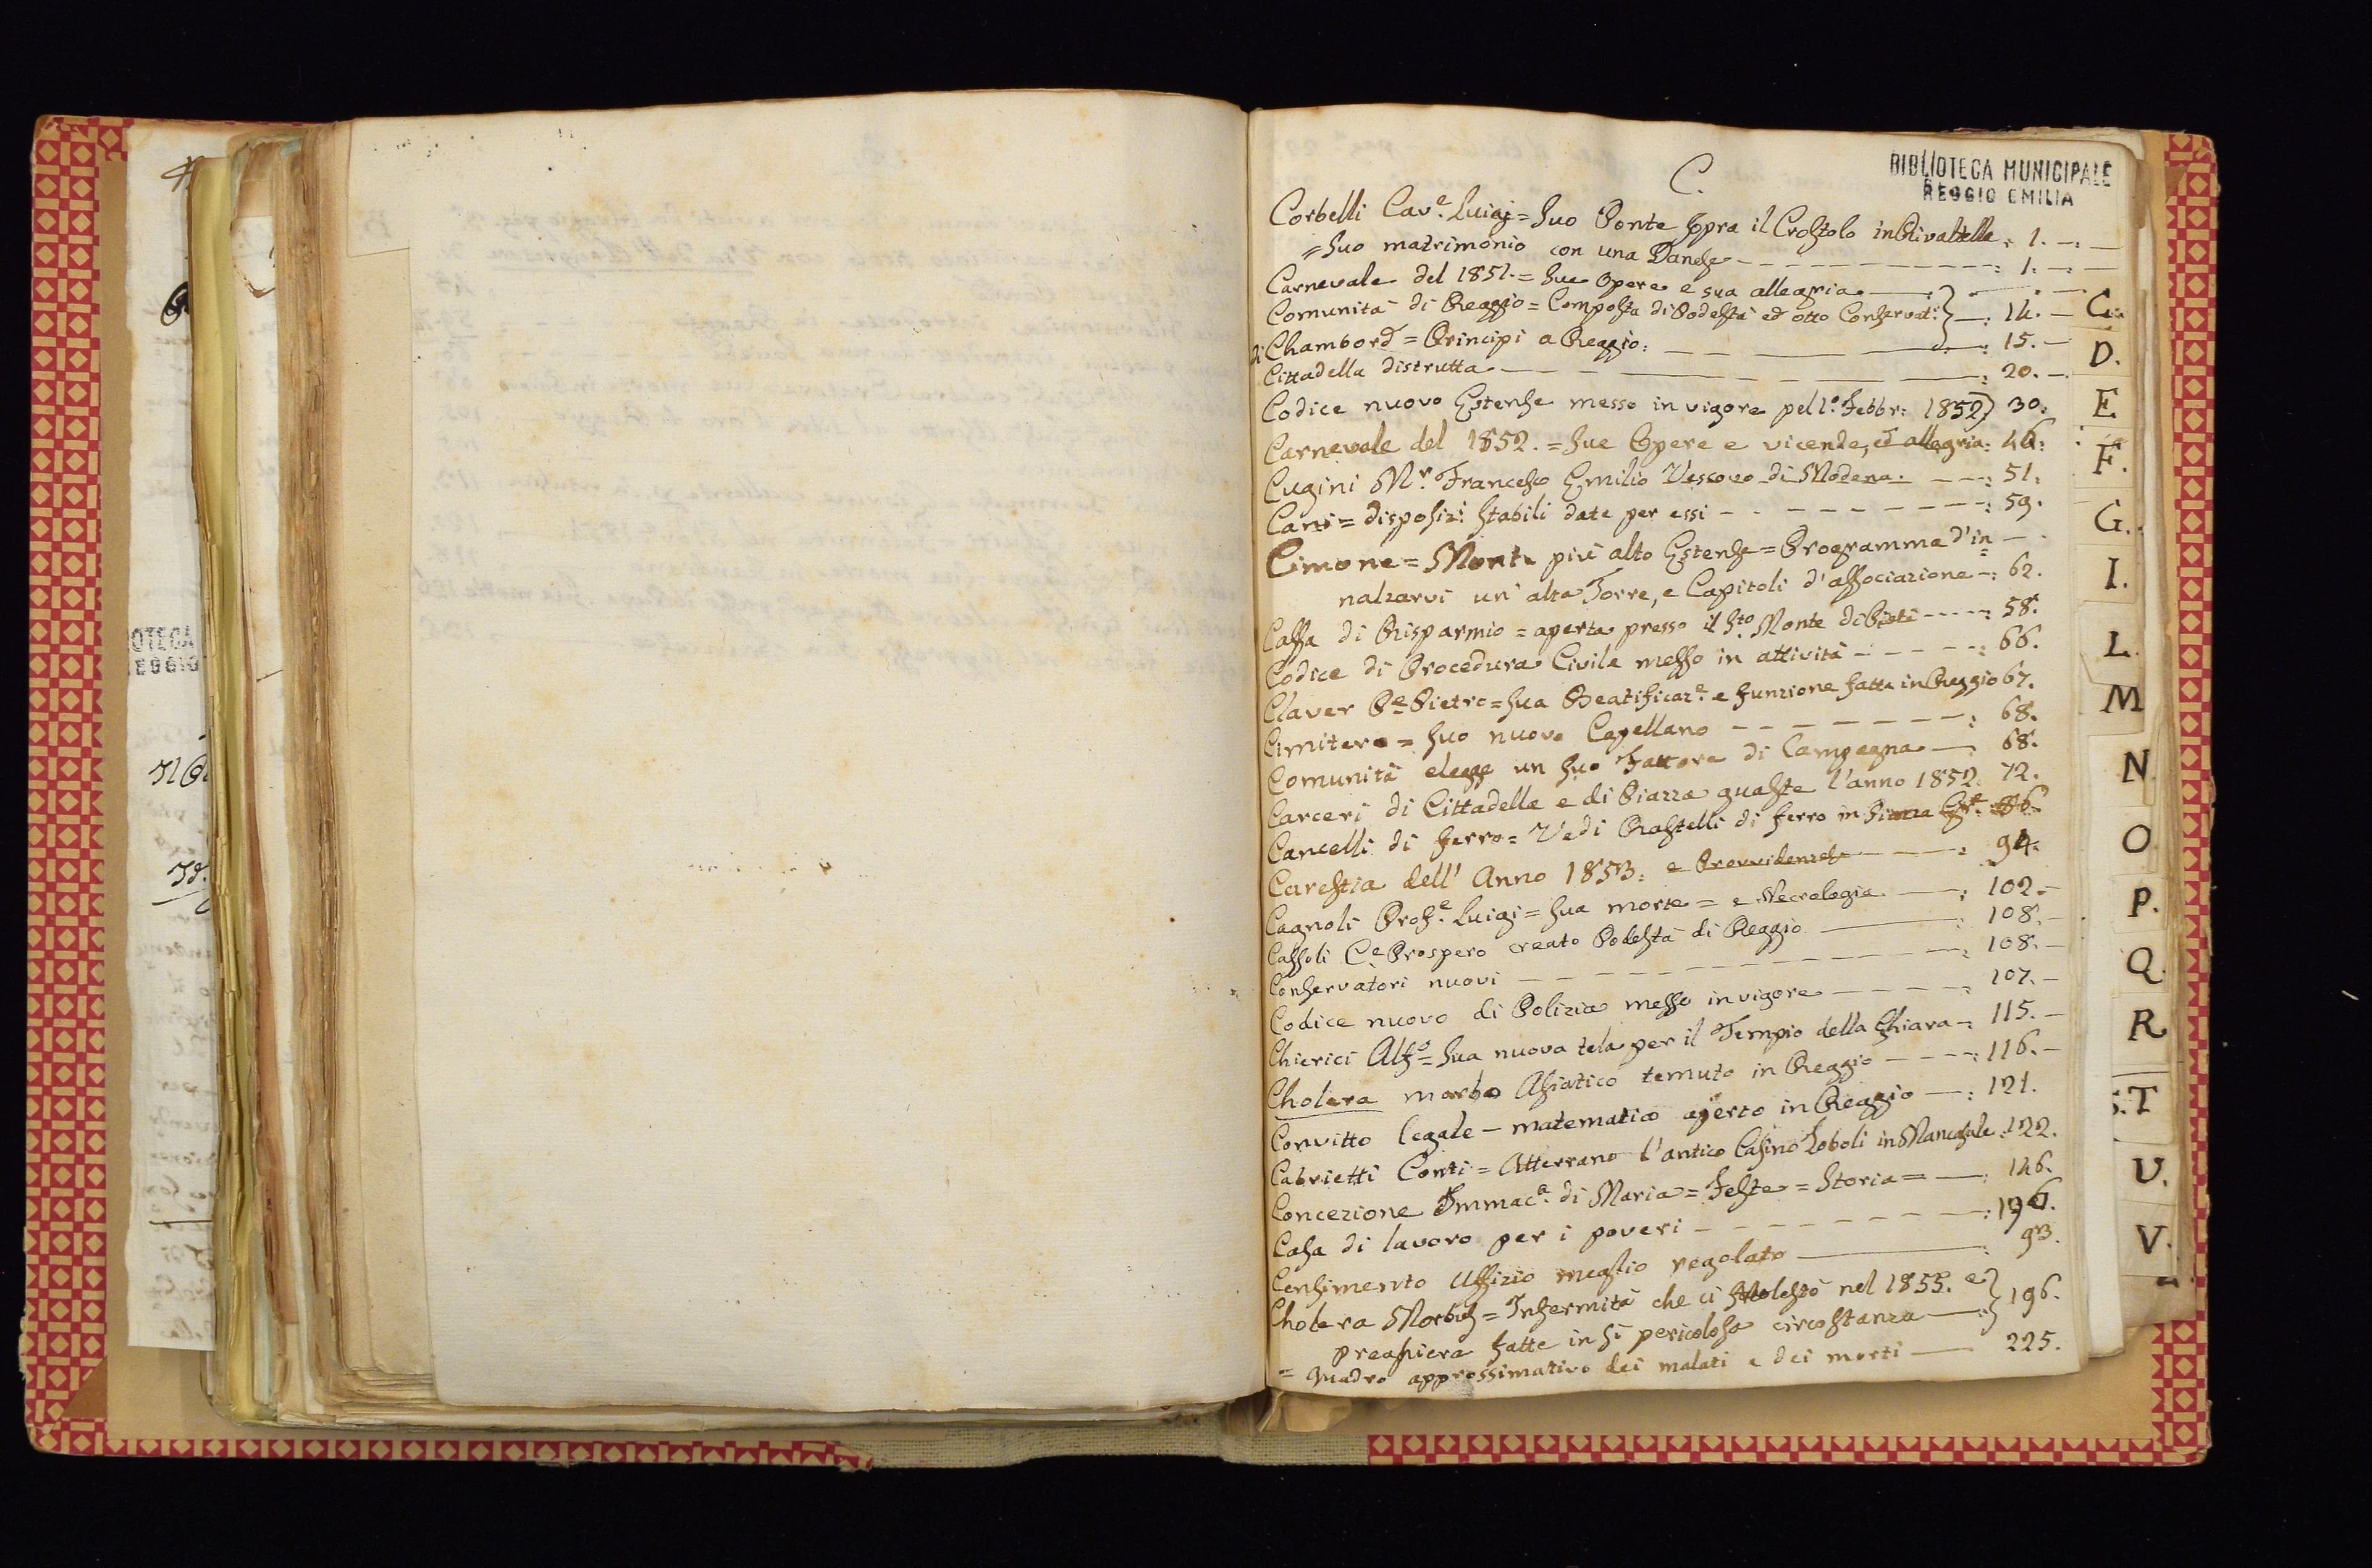 C.
BIBLIOTECA MUNICIPALE
REGGIO EMILIA
Corbelli Cav.e Luigi = Suo Ponte sopra il Crostolo in Rivaltella : 1. —
= Suo matrimonio con una Danese : 1. —
Carnevale del 1851. = Sue Opere e sua allegria
Comunità di Reggio = Composta di Podestà ed otto Conservat.i : 14. —
di Chambord = Principi a Reggio : 15. —
Cittadella distrutta : 20. —
Codice nuovo Estense messo in vigore pel 1.o Febbr: 1852) 30.
Carnevale del 1852. = Sue Opere e vicende, ed allegria : 46 :
Cugini M.r Francesco Emilio Vescovo di Modena. : 51.
Cani = disposiz.i stabili date per essi : 59.
Cimone = Monte più alto Estense = Programma d'in=
nalzarvi un' alta Torre, e Capitoli d'associazione : 62.
Cassa di Risparmio = aperta presso il S.to Monte di Pietà : 58.
Codice di Procedura Civile messo in attività : 66.
Claver P.e Pietro = Sua Beatificaz.e e funzione fatta in Reggio 67.
Cimitero = Suo nuovo Capellano : 68.
Comunità elegge un suo Fattore di Campagna : 68.
Carceri di Cittadella e di Piazza guaste l'anno 1852. 72.
Cancelli di ferro = Vedi Rastelli di ferro in Piazza
Carestia dell' Anno 1853. e Provvidenze : 94.
Cagnoli Prof.e Luigi = Sua morte = e Necrologia : 102. —
Cassoli C.e Prospero creato Podestà di Reggio : 108. —
Conservatori nuovi : 108. —
Codice nuovo di Polizia messo in vigore : 107. —
Chierici Alf.o = Sua nuova tela per il Tempio della Ghiara : 115. —
Cholera morbo Asiatico temuto in Reggio : 116. —
Convitto legale — matematico aperto in Reggio : 121.
Cabrietti Conti = Atterrano l'antico Casino Zoboli in Mancasale : 122.
Concezione Immac.a di Maria = Feste = Storia = : 146.
Casa di lavoro per i poveri : 196.
Censimento Uffizio meglio regolato : 93.
Cholera Morbus = Infermità che ci molestò nel 1855. e } 196.
preghiera fatte in sì pericolosa circostanza
= Quadro approssimativo dei malati e dei morti 225.
C.
D.
E.
F.
G.
I.
L.
M
N
O
P.
Q.
R
S.T
U.
V.